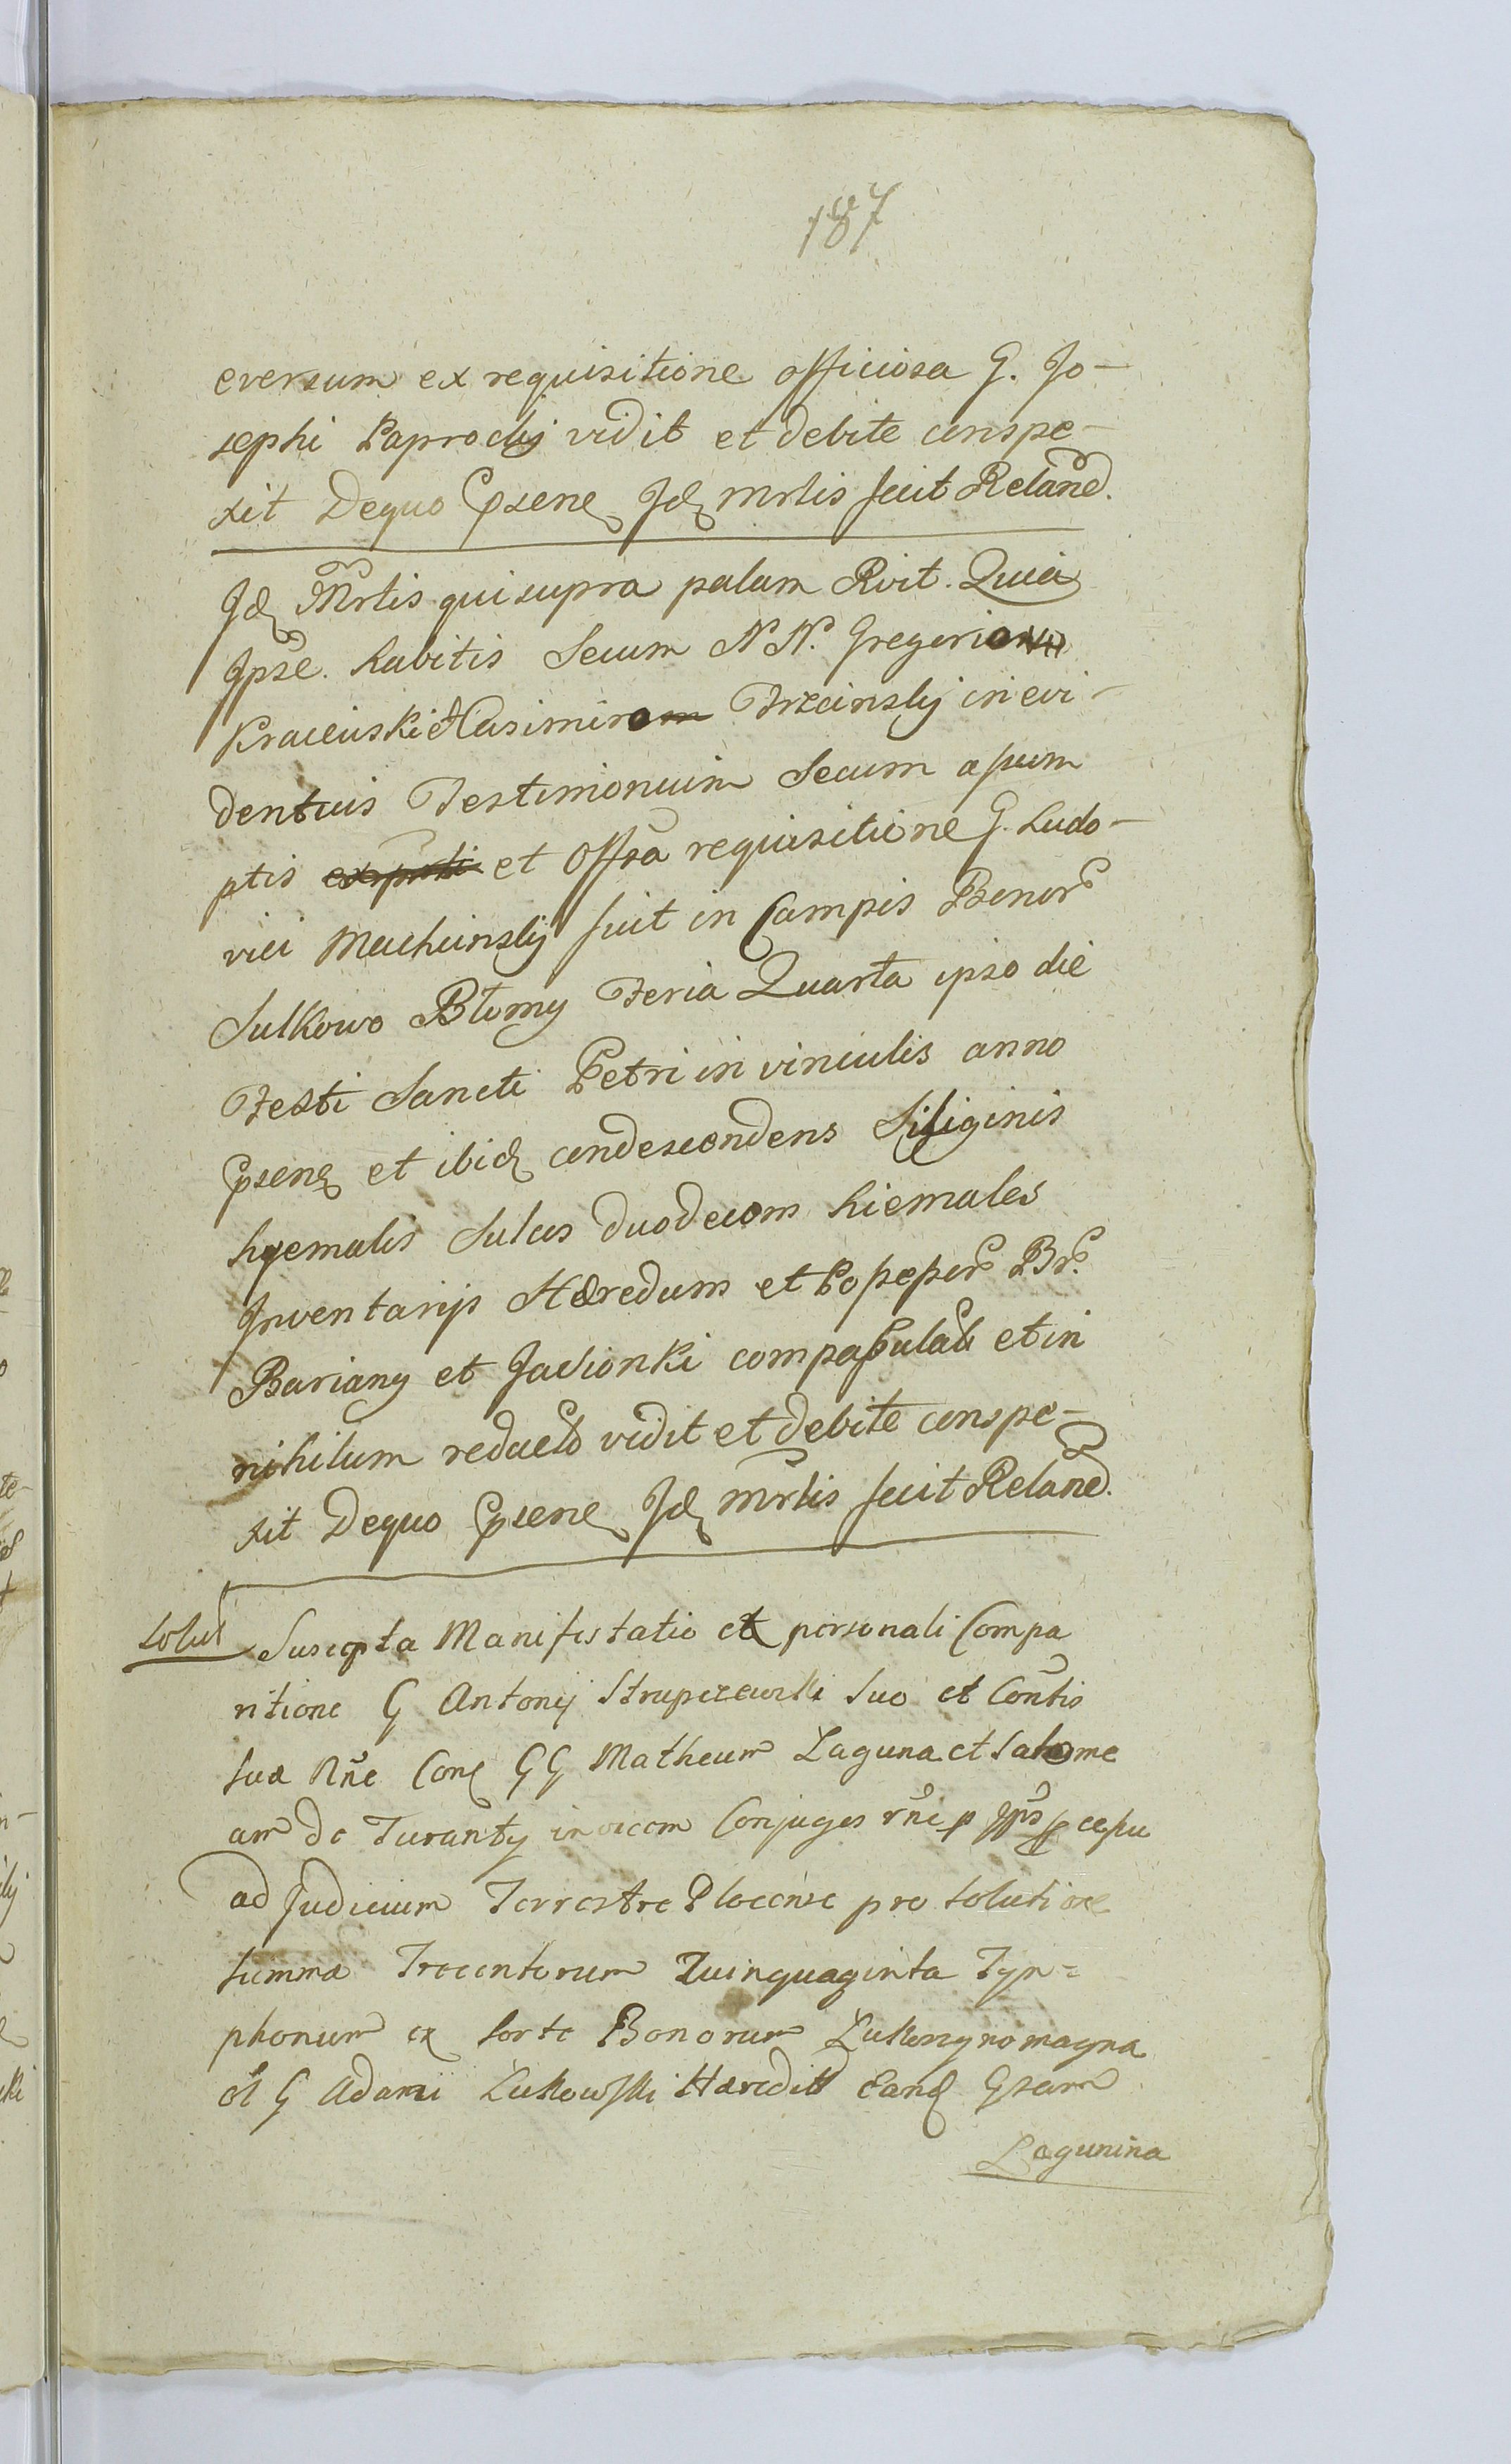 187
eversum ex requisitione officiosa G. Jo-
sephi Paprockij vidit et debite conspe-
xit Dequo Psene Jd Mrlis fecit Relaned.
Jd Mrlis qui supra palam Rvit. Quia
Jpse habitis Secum N N. Gregorio
Kraieuski et Casimiro Trzcinskij in evi-
dentius Testimonium Secum assum
ptis et Offsa requisitione G. Ludo-
vici Machcinskij fuit in Campis Bonor
Sulkowo Btomy Feria Quarta ipso die
Festi Sancti Petri in vinculis anno
Psene et ibid condescendens Siliginis
hyemalis Sulcos duodecem hiemales
Jnventarijs Hæredum et Possessor Br.
Bariany et Jasionki compasculat et in
nihilum redact vidit et debite conspe-
xit Dequo Psene Jd Mrlis fecit Relaned.
Solut Suscepta Manifestatio ex personali Compa
ritione G Antonij Strupczewski Suo et Contis
suæ Nne Con GG Matheum Laguna et Salome
am de Turanty invicem Conjuges rne p Jps cepu
ad Judicium Terrestre Plocense pro Solutione
summæ Trecentorum Quinquaginta Tyn=
phonum ex Sorte Bonorum Zukoszyno magna
G Adami Lukowski Hæredit Eand Gsam
Lagunina